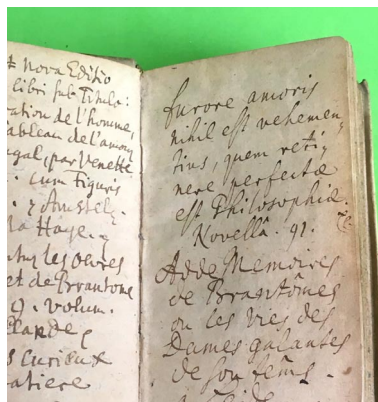 nova Editio
libri sub Titulo:
ration de l'homme,
ableau de l'amour
gal, par Venette
. cum Figuris
. 7 Amstel.
la Haye.
les Œvres
et de Brantome
9. volum.
s curieux
atiere
furore amoris
nihil est vehemen,
tius, quem reti,
nere perfectæ
est Philosophiæ.
Novellâ. 91.
Adde Memoires
de Brantômes
ou les Vies des
Dames galantes
de son tems.